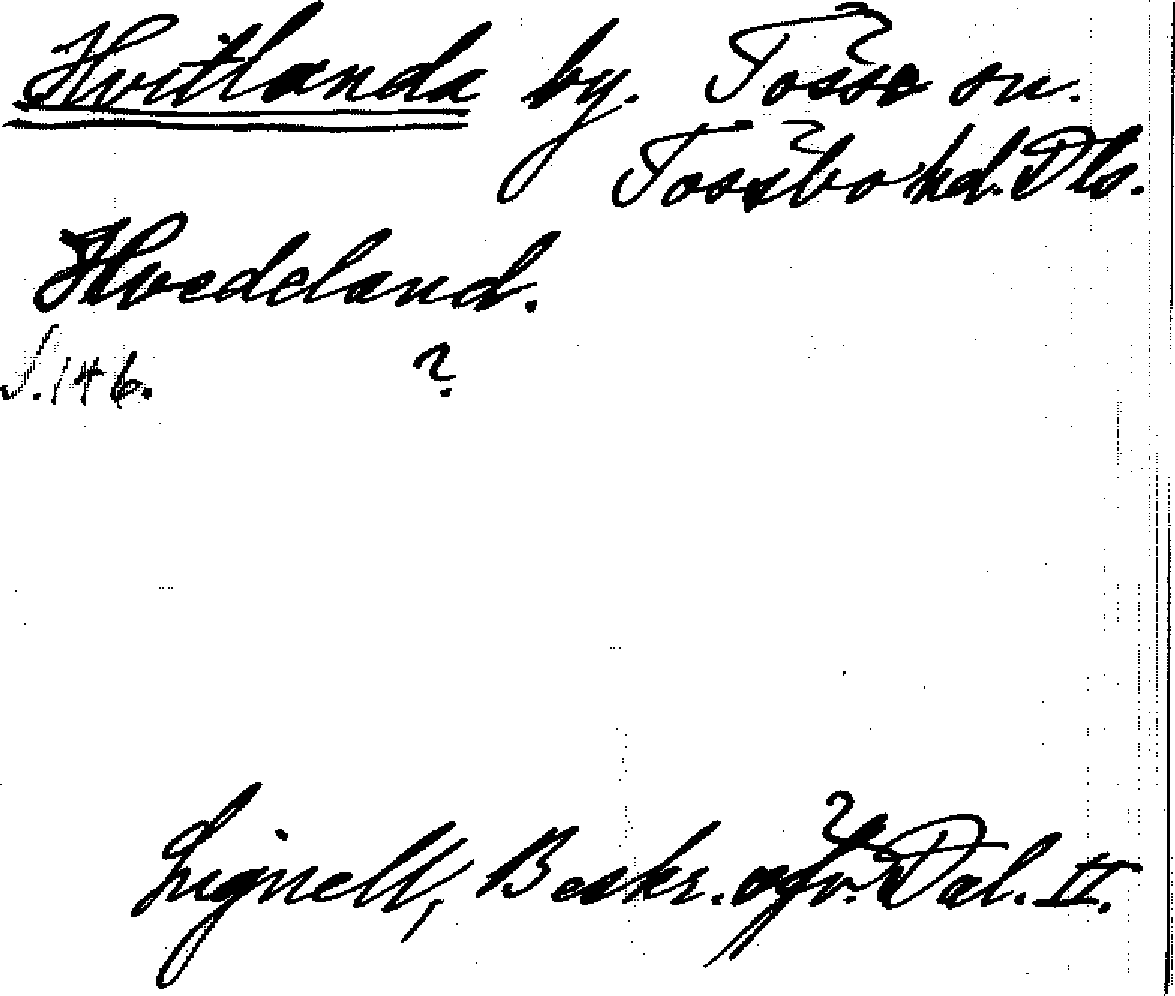 Hvitlanda by. Tösse sn.
Tössbo hd. Dls.
Hvedeland.
S. 146. ?
Lignell, Beskr. öfv. Dal. II.